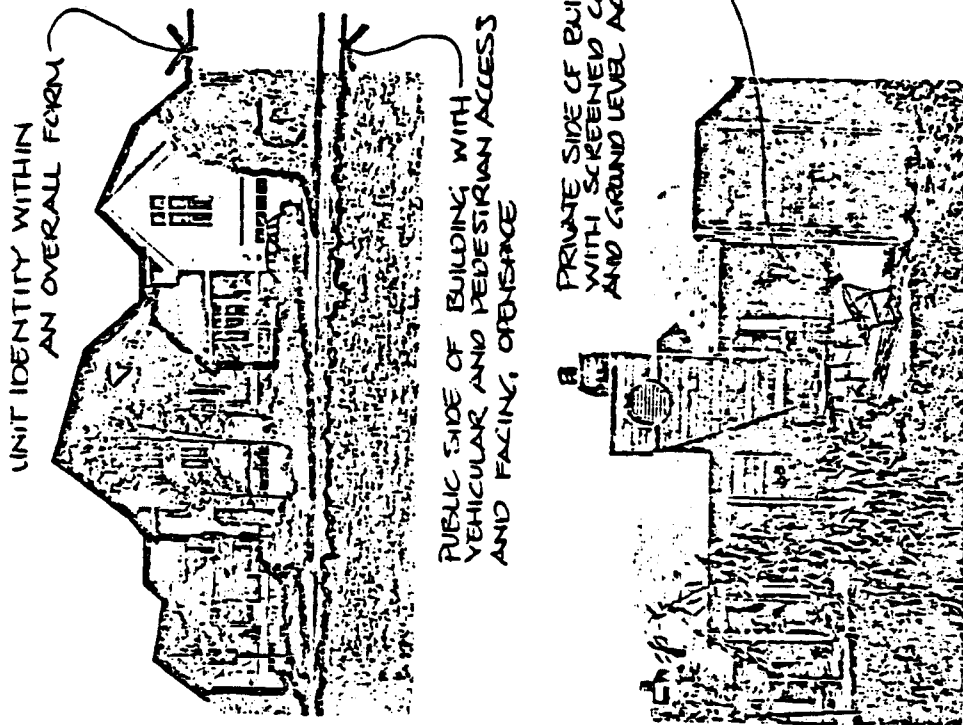 UNIT IDENTITY WITHIN
AN OVERALL FORM
PUBLIC SIDE OF BUILDING WITH
VEHICULAR AND PEDESTRIAN ACCESS
AND FACING, OPENSPACE
PRIVATE SIDE OF
WITH SCREENED
AND GROUND LEVEL